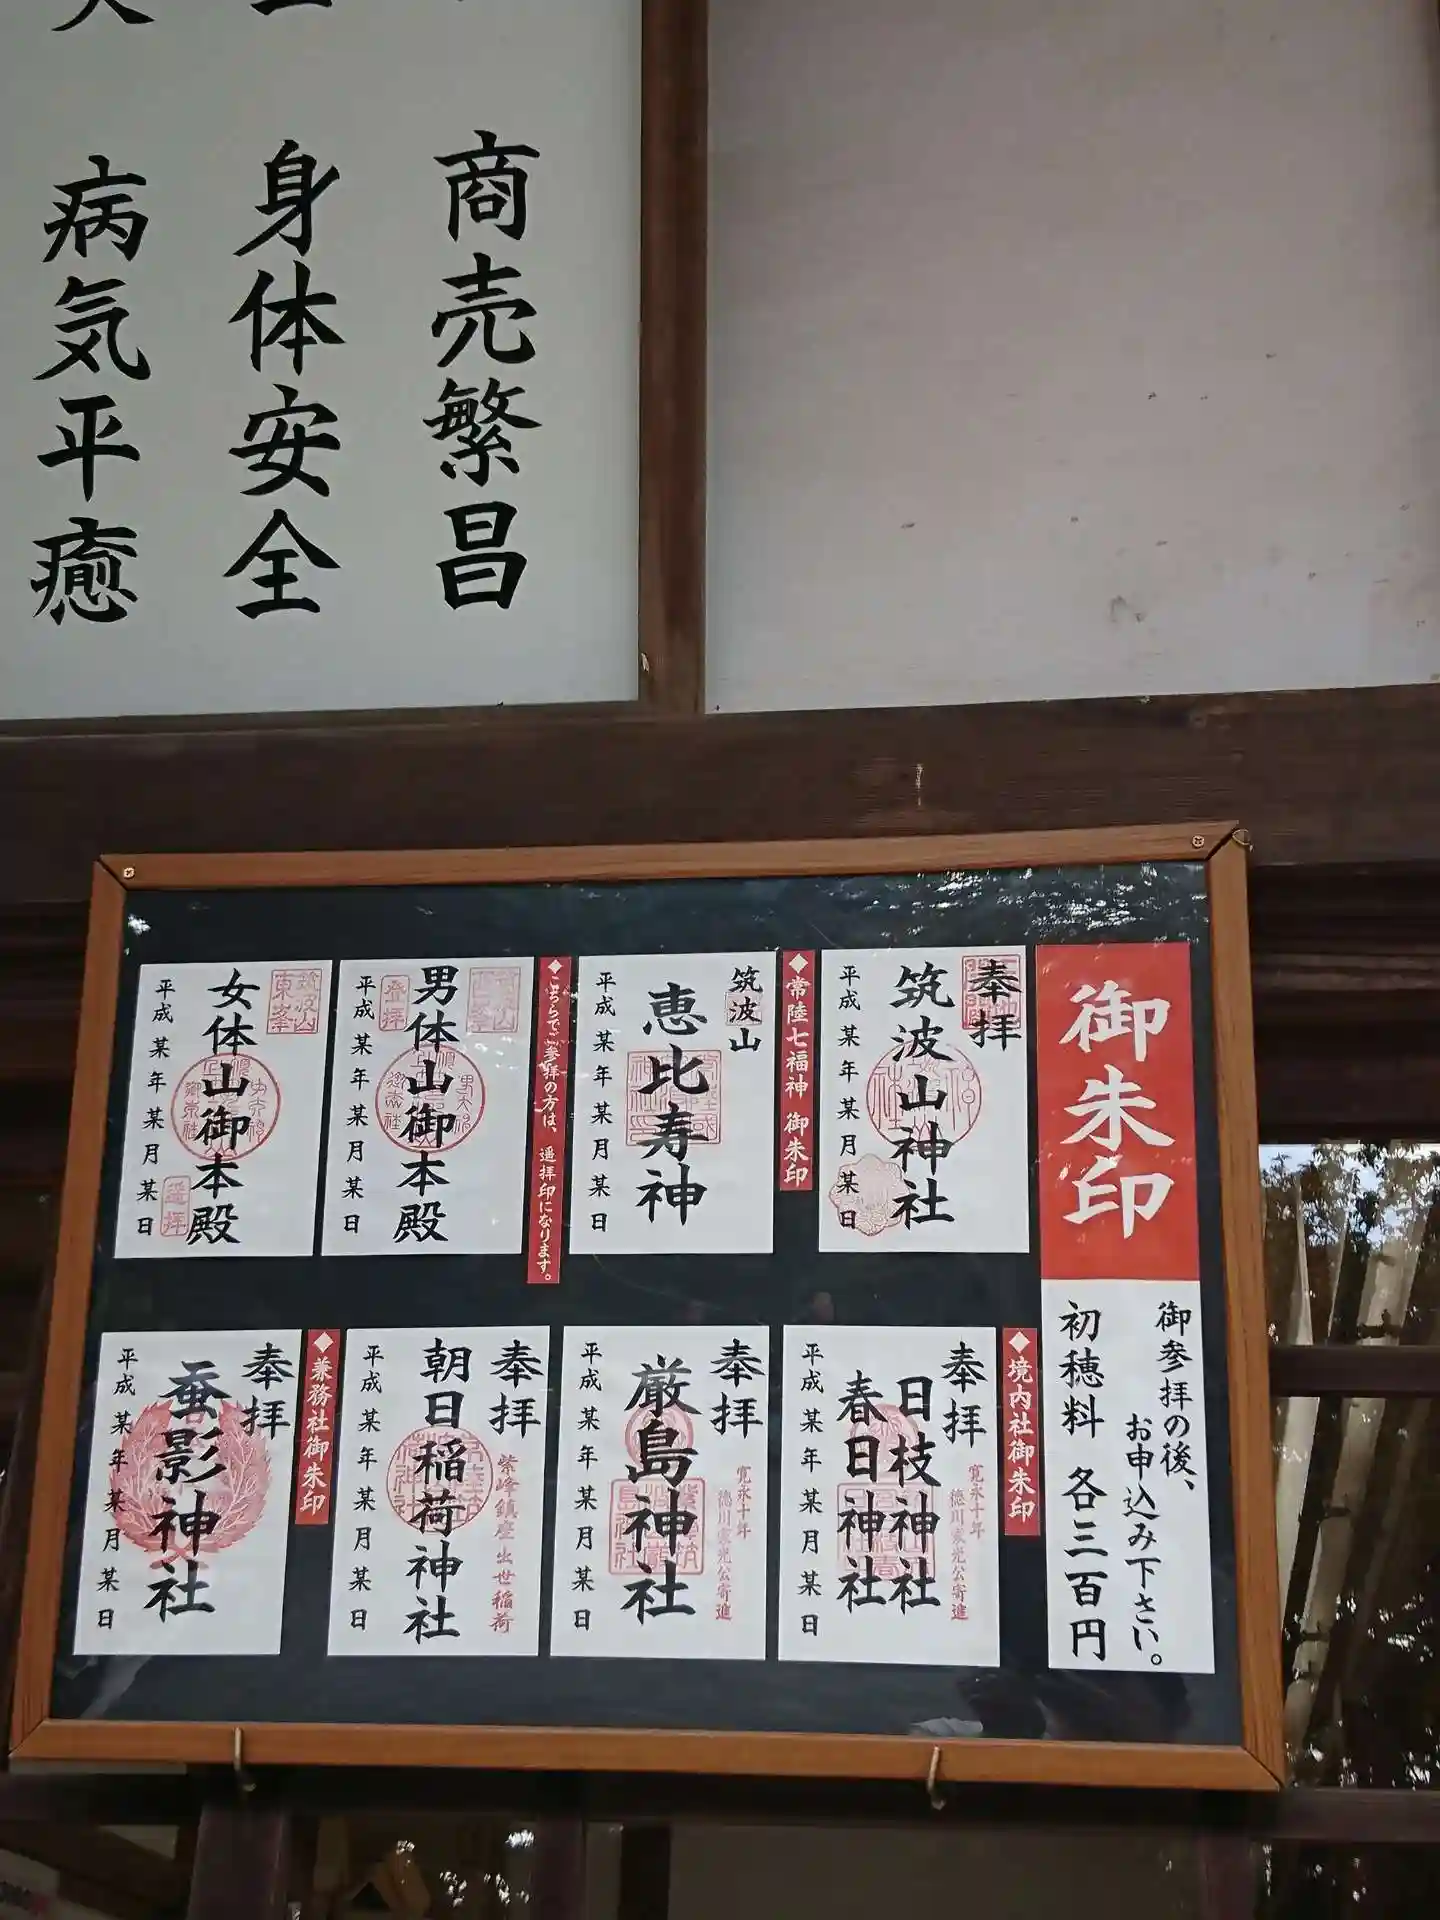 商売繁昌
身体安全
病気平癒
御朱印
御参拝の後、
お申込み下さい。
初穂料 各三百円
奉拝
筑波山神社
平成某年某月某日
◆常陸七福神 御朱印
筑波山
恵比寿神
平成某年某月某日
◆こちらでご参拝の方は、遥拝印になります。
男体山御本殿
登拝
平成某年某月某日
筑波山
東峯
女体山御本殿
遥拝
平成某年某月某日
◆境内社御朱印
奉拝
寛永十年
徳川家光公寄進
日枝神社
春日神社
平成某年某月某日
奉拝
寛永十年
徳川家光公寄進
厳島神社
平成某年某月某日
奉拝
紫峰鎮座出世稲荷
朝日稲荷神社
平成某年某月某日
◆兼務社御朱印
奉拝
蚕影神社
平成某年某月某日